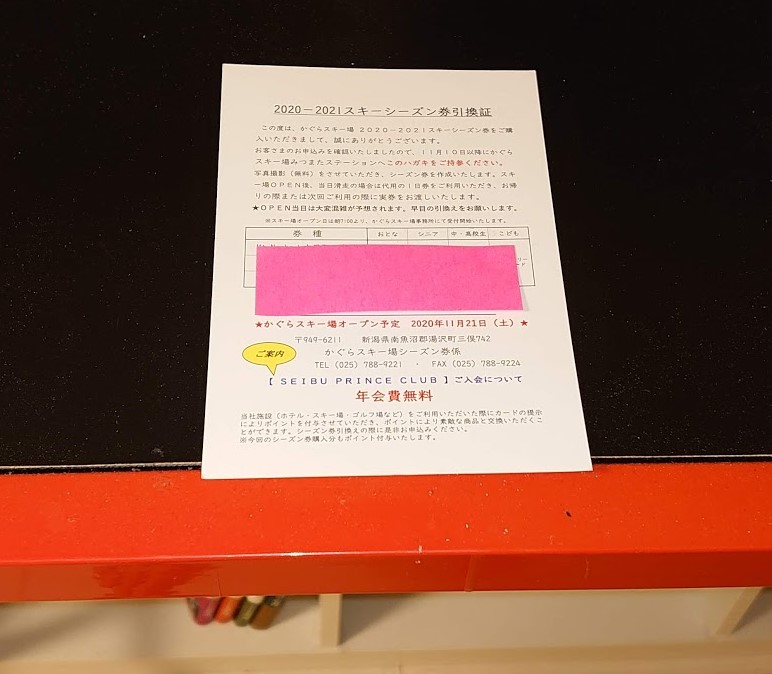 2020－2021スキーシーズン券引換証
この度は、かぐらスキー場 2020－2021スキーシーズン券をご購
入いただきまして、誠にありがとうございます。
お客さまのお申込みを確認いたしましたので、11月10日以降にかぐら
スキー場みつまたステーションへこのハガキをご持参ください。
写真撮影（無料）をさせていただき、シーズン券を作成いたします。スキ
ー場OPEN後、当日滑走の場合は代用の1日券をご利用いただき、お帰
りの際または次回ご利用の際に実券をお渡しいたします。
★OPEN当日は大変混雑が予想されます。早目の引換えをお願いします。
※スキー場オープン日は朝7:00より、かぐらスキー場事務所にて受付開始いたします。
券 種 おとな シニア 中・高校生 こども
★かぐらスキー場オープン予定 2020年11月21日（土）★
〒949-6211 新潟県南魚沼郡湯沢町三俣742
かぐらスキー場シーズン券係
TEL (025) 788-9221 ・ FAX (025) 788-9224
ご案内
【 SEIBU PRINCE CLUB 】ご入会について
年会費無料
当社施設（ホテル・スキー場・ゴルフ場など）をご利用いただいた際にカードの提示
によりポイントを付与させていただき、ポイントにより素敵な商品と交換いただくこ
とができます。シーズン券引換えの際に是非お申込みください。
※今回のシーズン券購入分もポイント付与いたします。